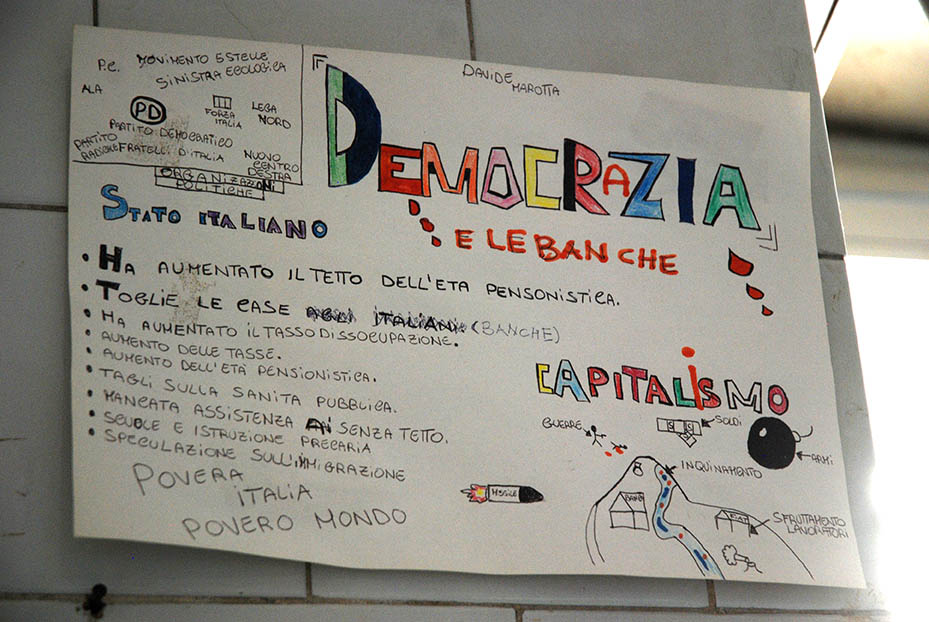 P.C. MOVIMENTO 5 STELLE
SINISTRA ECOLOGICA
ALA
PD
FORZA
ITALIA
LEGA
NORD
PARTITO DEMOCRATICO
PARTITO
RADICHE FRATELLI D'ITALIA
NUOVO
CENTRO
DESTRA
ORGANIZAZIONI
POLITICHE
DAVIDE
MAROTTA
DEMOCRAZIA
E LE BANCHE
STATO ITALIANO
• HA AUMENTATO IL TETTO DELL'ETA PENSONISTICA.
• TOGLIE LE CASE AGLI ITALIANI (BANCHE)
• HA AUMENTATO IL TASSO DISSOCUPAZIONE.
• AUMENTO DELLE TASSE.
• AUMENTO DELL'ETÀ PENSIONISTICA.
• TAGLI SULLA SANITA PUBBLICA.
• MANCATA ASSISTENZA AI SENZA TETTO.
• SCUOLE E ISTRUZIONE PRECARIA
• SPECULAZIONE SULL'IMMIGRAZIONE
POVERA
ITALIA
POVERO MONDO
CAPITALISMO
GUERRE
SOLDI
ARMI
INQUINAMENTO
MISSILE
BANCA
FIAT
SFRUTTAMENTO
LAVORATORI